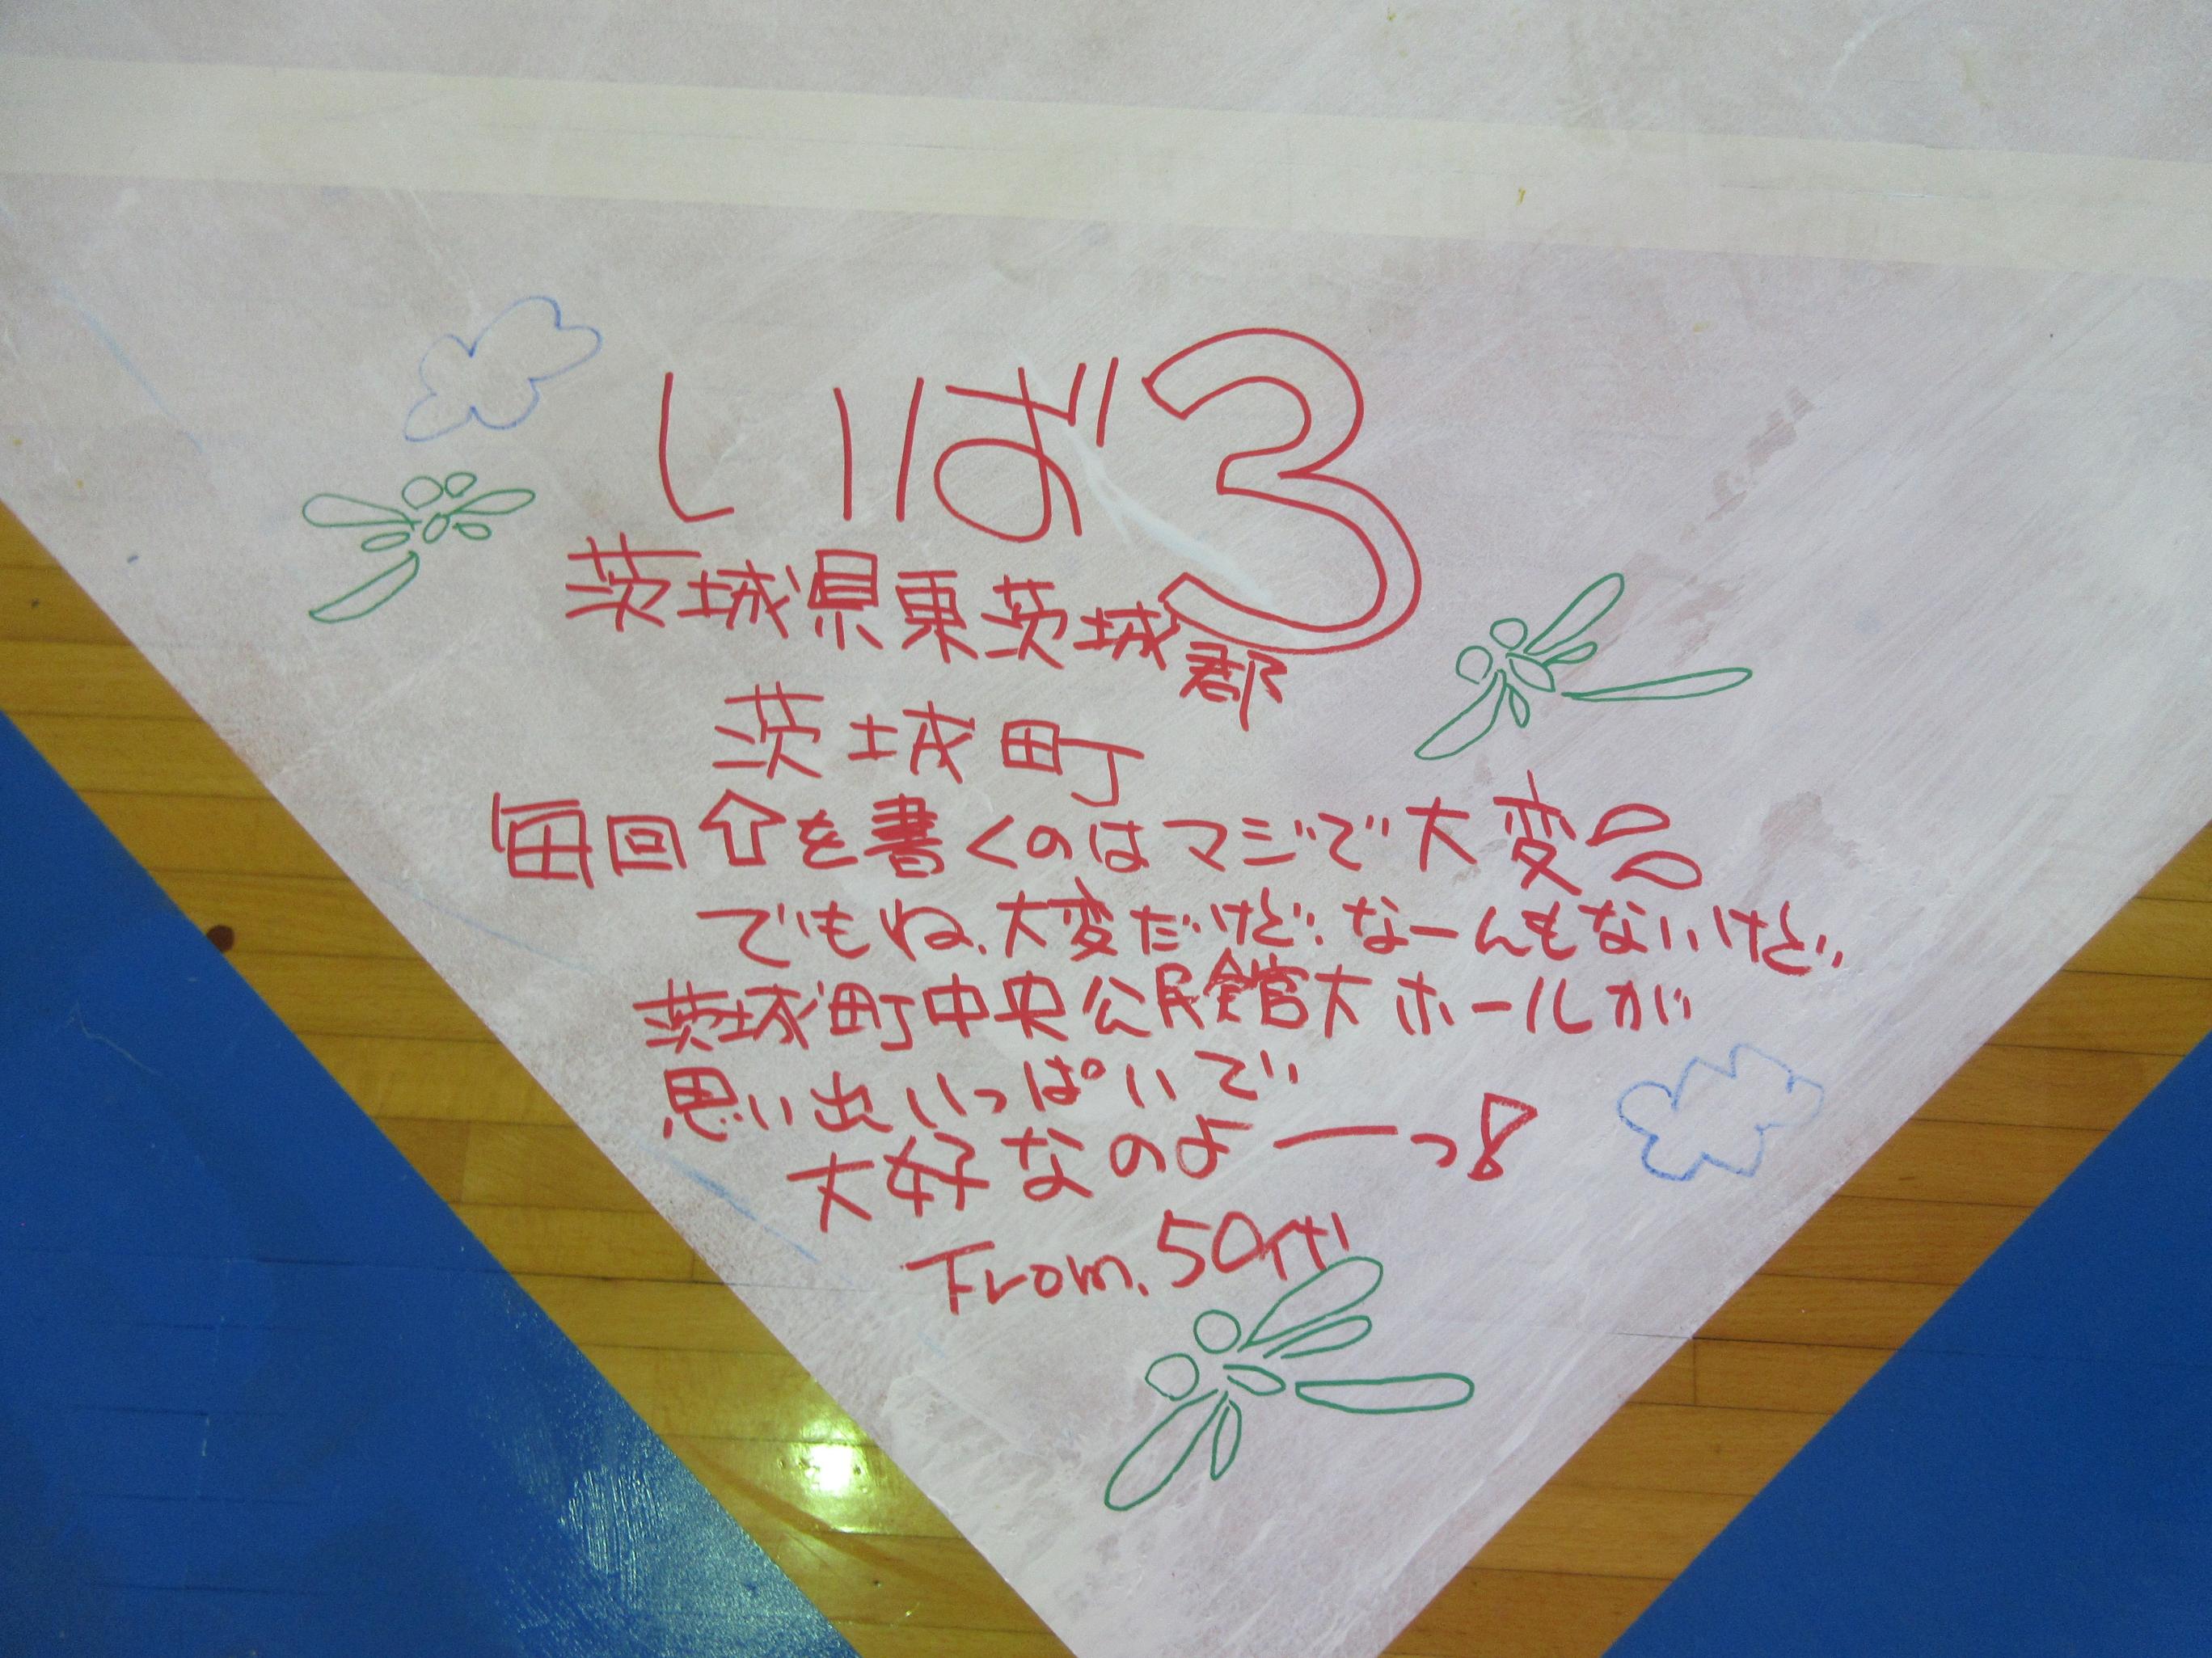 いば3
茨城県東茨城郡
茨城町
毎回⇧を書くのはマジで大変
でもね、大変だけど、なーんもないけど、
茨城町中央公民館大ホールが
思い出いっぱいで
大好なのよーっ!
From.50代